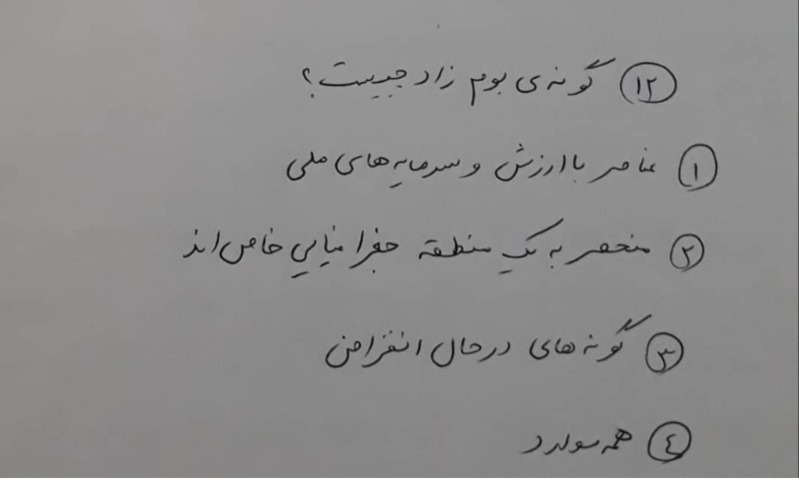 ۱۲ گونه‌ی بوم زاد چیست؟
۱ عناصر با ارزش و سرمایه‌های ملی
۲ منحصر به یک منطقه جغرافیایی خاص‌اند
۳ گونه‌های درحال انقراض
۴ همه موارد